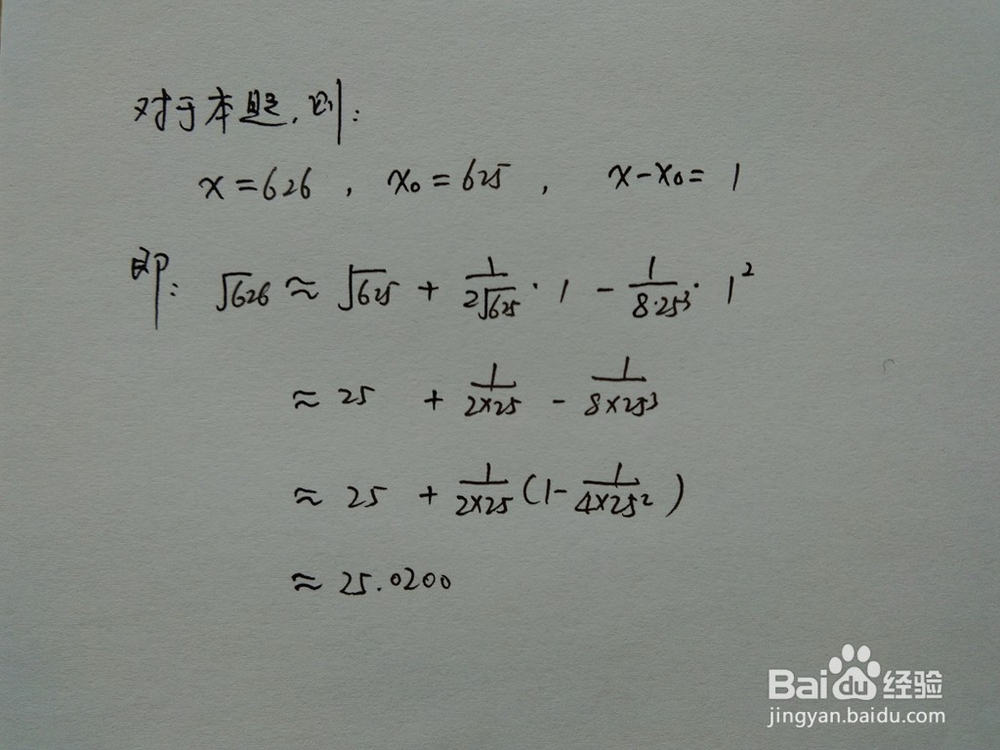 对于本题,则:
x=626, x₀=625, x-x₀=1
即: √626 ≈ √625 + 1/(2√625)·1 - 1/(8·25³)·1²
≈ 25 + 1/(2×25) - 1/(8×25³)
≈ 25 + 1/(2×25)(1-1/(4×25²))
≈ 25.0200
Baidu经验
jingyan.baidu.com